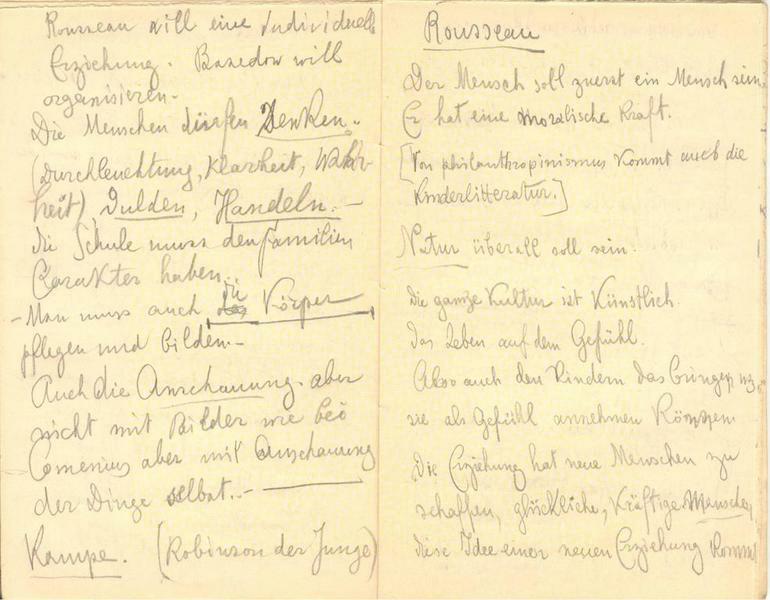 Rousseau will eine individuelle
Erziehung. Basedow will
organisieren.
Die Menschen dürfen Denken.
(Durchleuchtung, Klarheit, Wahr-
heit), Dulden, Handeln. —
die Schule muss den Familien
Carakter haben.
— Man muss auch die Körper
pflegen und bilden. —
Auch die Anschauung. aber
nicht mit Bilder wie bei
Comenius aber mit Anschauung
der Dinge selbst. —
Kampe. (Robinson der Junge)
Rousseau
Der Mensch soll zuerst ein Mensch sein.
Er hat eine moralische Kraft.
[Von philanthropinismus kommt auch die
Kinderlitteratur.]
Natur überall soll sein:
die ganze Kultur ist Künstlich.
das Leben auf dem Gefühl.
Also auch den Kindern das bringen
sie als Gefühl annehmen Können.
Die Erziehung hat neue Menschen zu
schaffen, glückliche, Kräftige Menschen
diese Idee einer neuen Erziehung Kommt